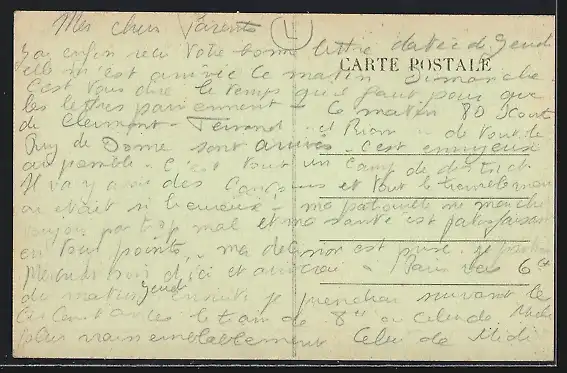 Mes chers Parents
J'ai enfin reçu votre bonne lettre datée de Jeudi
CARTE POSTALE
elle m'est arrivée ce matin Dimanche.
C'est vous dire le temps qu'il faut pour que
les lettres parviennent - Ce matin 80 Scouts
de Clermont-Ferrand et Riom de tout le
Puy de Dome sont arrivés. c'est ennuyeux
au possible. C'est tout un camp de district
Il va y avoir des Concours et tout le
on était si heureux - ma patrouille ne marche
pas trop mal et ma santé est satisfaisante
en tous points, ma décision est prise. je
Mercredi soir d'ici et arriverai a Paris vers 6h
du matin Jeudi ensuite je prendrai suivant le
le train de 8h ou celui de Midi
plus vraisemblablement celui de Midi